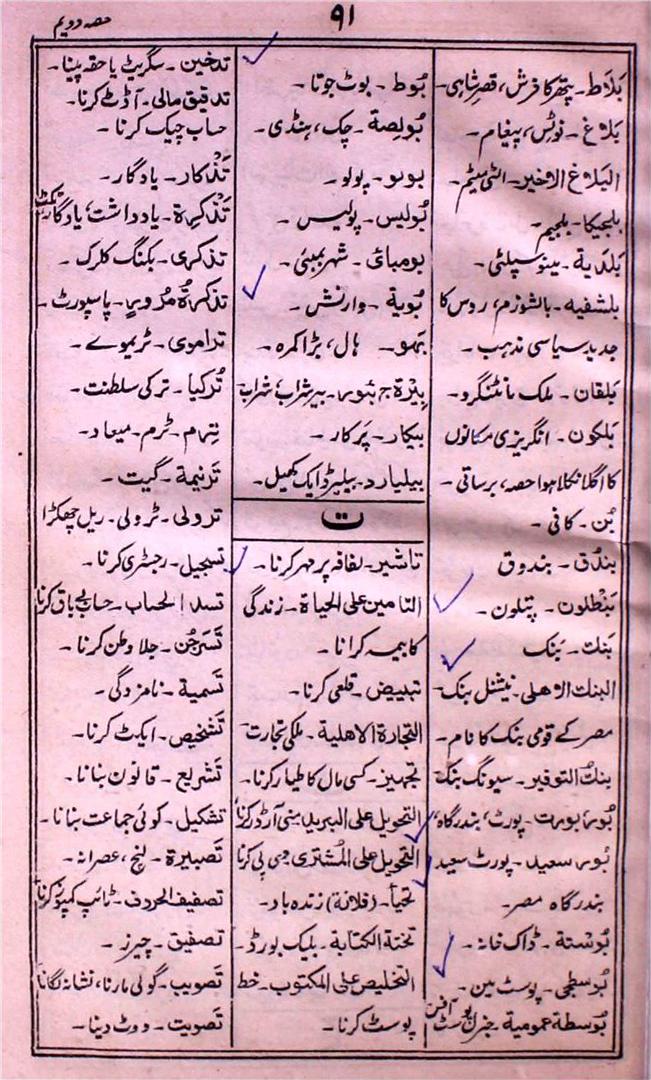 حصہ دویم
۹۱
بَلَاط۔ پتھر کا فرش، قصرِ شاہی۔
بَلاغ۔ نوٹس، پیغام۔
البَلاغ الاخیر۔ الٹی میٹم۔
بلجیکا۔ بلجیم۔
بَلَدیة۔ میونسپلٹی۔
بلشفیه۔ بالشوزم، روس کا
جدید سیاسی مذہب۔
بَلقان۔ ملک مانٹنگرو۔
بَلکون۔ انگریزی مکانوں
کا اگلا نکلا ہوا حصہ، برساتی۔
بُن۔ کافی۔
بندُق۔ بندوق
بَنْطلون۔ پتلون۔
بَنك۔ بَنک
البنك الاهلی۔ نیشنل بنک۔
مصر کے قومی بنک کا نام۔
بنكُ التوفیر۔ سیونگ بنک
بُور، بورت۔ پورٹ، بندرگاہ،
بُور سعید۔ پورٹ سعید
بندرگاہ مصر۔
بُوستة۔ ڈاک خانہ۔
بُوسطجی۔ پوسٹ مین۔
بُوسطة عمومیة۔ جنرل پوسٹ آفس
بُوط۔ بوٹ جوتا۔
بُولِصة۔ چک، ہنڈی۔
بولو۔ پولو۔
بُولیس۔ پولیس۔
بومبای۔ شہر بمبئی۔
بُویة۔ وارنش۔
بَهو۔ ہال، بڑا کمرہ۔
بِیْرَة ج بیُور۔ بیر شراب، شراب
بیکار۔ پَرکار۔
بیلیارد۔ بیلیرڈ ایک کھیل۔
ت
تاشیر۔ لفافہ پر مہر کرنا۔
التامین علی الحیاة۔ زندگی
کا بیمہ کرانا۔
تبییض۔ قلعی کرنا۔
التجارة الاهلیة۔ ملکی تجارت
تجهیز۔ کسی مال کا طیار کرنا۔
التحویل علی البرید۔ منی آرڈر کرنا
التحویل علی المُشتری۔ وی پی کرنا
تحیا۔ (فلانة) زندہ باد۔
تختة الکتابة۔ بلیک بورڈ۔
التخلیص علی المکتوب۔ خط
پوسٹ کرنا۔
تدخین۔ سگریٹ یا حقہ پینا۔
تدقیق مالی۔ آڈٹ کرنا۔
حساب چیک کرنا۔
تَذْکار۔ یادگار۔
تَذْکِرة۔ یادداشت، یادگار، ٹکٹ
تذکری۔ بکنگ کلرک۔
تذکرةُ مُرُوْر۔ پاسپورٹ۔
تراموی۔ ٹریموے۔
تُرکیا۔ ترکی سلطنت۔
تِرم۔ ٹرم۔ میعاد۔
تَرنیمة۔ گیت۔
ترولی۔ ٹرولی۔ ریل چھکڑا
تسجیل۔ رجسٹری کرنا۔
تسد الحساب۔ حساب بے باق کرنا
جلا وطن کرنا۔
تَسمیة۔ نامزدگی۔
تَشخیص۔ ایکٹ کرنا۔
تَشریع۔ قانون بنانا۔
تشکیل۔ کوئی جماعت بنانا۔
تَصبیرة۔ لنچ، عصرانہ۔
تصفیف الحروف۔ ٹائپ کمپوز کرنا
تصفیق۔ چیرز۔
تَصویب۔ گولی مارنا، نشانہ لگانا
تَصویت۔ ووٹ دینا۔